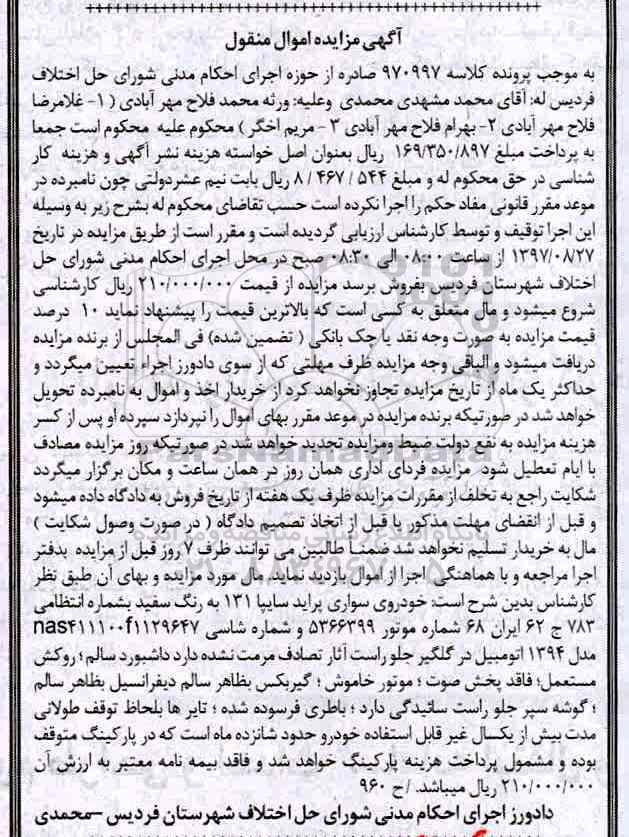 آگهی مزایده اموال منقول
به موجب پرونده کلاسه ۹۷۰۹۹۷ صادره از حوزه اجرای احکام مدنی شورای حل اختلاف
فردیس له: آقای محمد مشهدی محمدی وعلیه: ورثه محمد فلاح مهر آبادی ( ۱- غلامرضا
فلاح مهر آبادی ۲- بهرام فلاح مهر آبادی ۳ - مریم اخگر ) محکوم علیه محکوم است جمعا
به پرداخت مبلغ ۱۶۹/۳۵۰/۸۹۷ ریال بعنوان اصل خواسته هزینه نشر آگهی و هزینه کار
شناسی در حق محکوم له و مبلغ ۵۴۴ / ۴۶۷ / ۸ ریال بابت نیم عشردولتی چون نامبرده در
موعد مقرر قانونی مفاد حکم را اجرا نکرده است حسب تقاضای محکوم له بشرح زیر به وسیله
این اجرا توقیف و توسط کارشناس ارزیابی گردیده است و مقرر است از طریق مزایده در تاریخ
۱۳۹۷/۰۸/۲۷ از ساعت ۰۸:۰۰ الی ۰۸:۳۰ صبح در محل اجرای احکام مدنی شورای حل
اختلاف شهرستان فردیس بفروش برسد مزایده از قیمت ۲۱۰/۰۰۰/۰۰۰ ریال کارشناسی
شروع میشود و مال متعلق به کسی است که بالاترین قیمت را پیشنهاد نماید ۱۰ درصد
قیمت مزایده به صورت وجه نقد یا چک بانکی ( تضمین شده) فی المجلس از برنده مزایده
دریافت میشود و الباقی وجه مزایده ظرف مهلتی که از سوی دادورز اجراء تعیین میگردد و
حداکثر یک ماه از تاریخ مزایده تجاوز نخواهد کرد از خریدار اخذ و اموال به نامبرده تحویل
خواهد شد در صورتیکه برنده مزایده در موعد مقرر بهای اموال را نپردازد سپرده او پس از کسر
هزینه مزایده به نفع دولت ضبط ومزایده تجدید خواهد شد در صورتیکه روز مزایده مصادف
با ایام تعطیل شود مزایده فردای اداری همان روز در همان ساعت و مکان برگزار میگردد
شکایت راجع به تخلف از مقررات مزایده ظرف یک هفته از تاریخ فروش به دادگاه داده میشود
و قبل از انقضای مهلت مذکور یا قبل از اتخاذ تصمیم دادگاه ( در صورت وصول شکایت )
مال به خریدار تسلیم نخواهد شد ضمنا طالبین می توانند ظرف ۷ روز قبل از مزایده بدفتر
اجرا مراجعه و با هماهنگی اجرا از اموال بازدید نماید. مال مورد مزایده و بهای آن طبق نظر
کارشناس بدین شرح است: خودروی سواری پراید سایپا ۱۳۱ به رنگ سفید بشماره انتظامی
۷۸۳ ج ۶۲ ایران ۶۸ شماره موتور ۵۳۶۶۳۹۹ و شماره شاسی nas۴۱۱۱۰۰f۱۱۲۹۶۴۷
مدل ۱۳۹۴ اتومبیل در گلگیر جلو راست آثار تصادف مرمت نشده دارد داشبورد سالم ؛ روکش
مستعمل؛ فاقد پخش صوت ؛ موتور خاموش ؛ گیربکس بظاهر سالم دیفرانسیل بظاهر سالم
؛ گوشه سپر جلو راست سائیدگی دارد ؛ باطری فرسوده شده ؛ تایر ها بلحاظ توقف طولانی
مدت بیش از یکسال غیر قابل استفاده خودرو حدود شانزده ماه است که در پارکینگ متوقف
بوده و مشمول پرداخت هزینه پارکینگ خواهد شد و فاقد بیمه نامه معتبر به ارزش آن
۲۱۰/۰۰۰/۰۰۰ ریال میباشد. /ح ۹۶۰
دادورز اجرای احکام مدنی شورای حل اختلاف شهرستان فردیس –محمدی